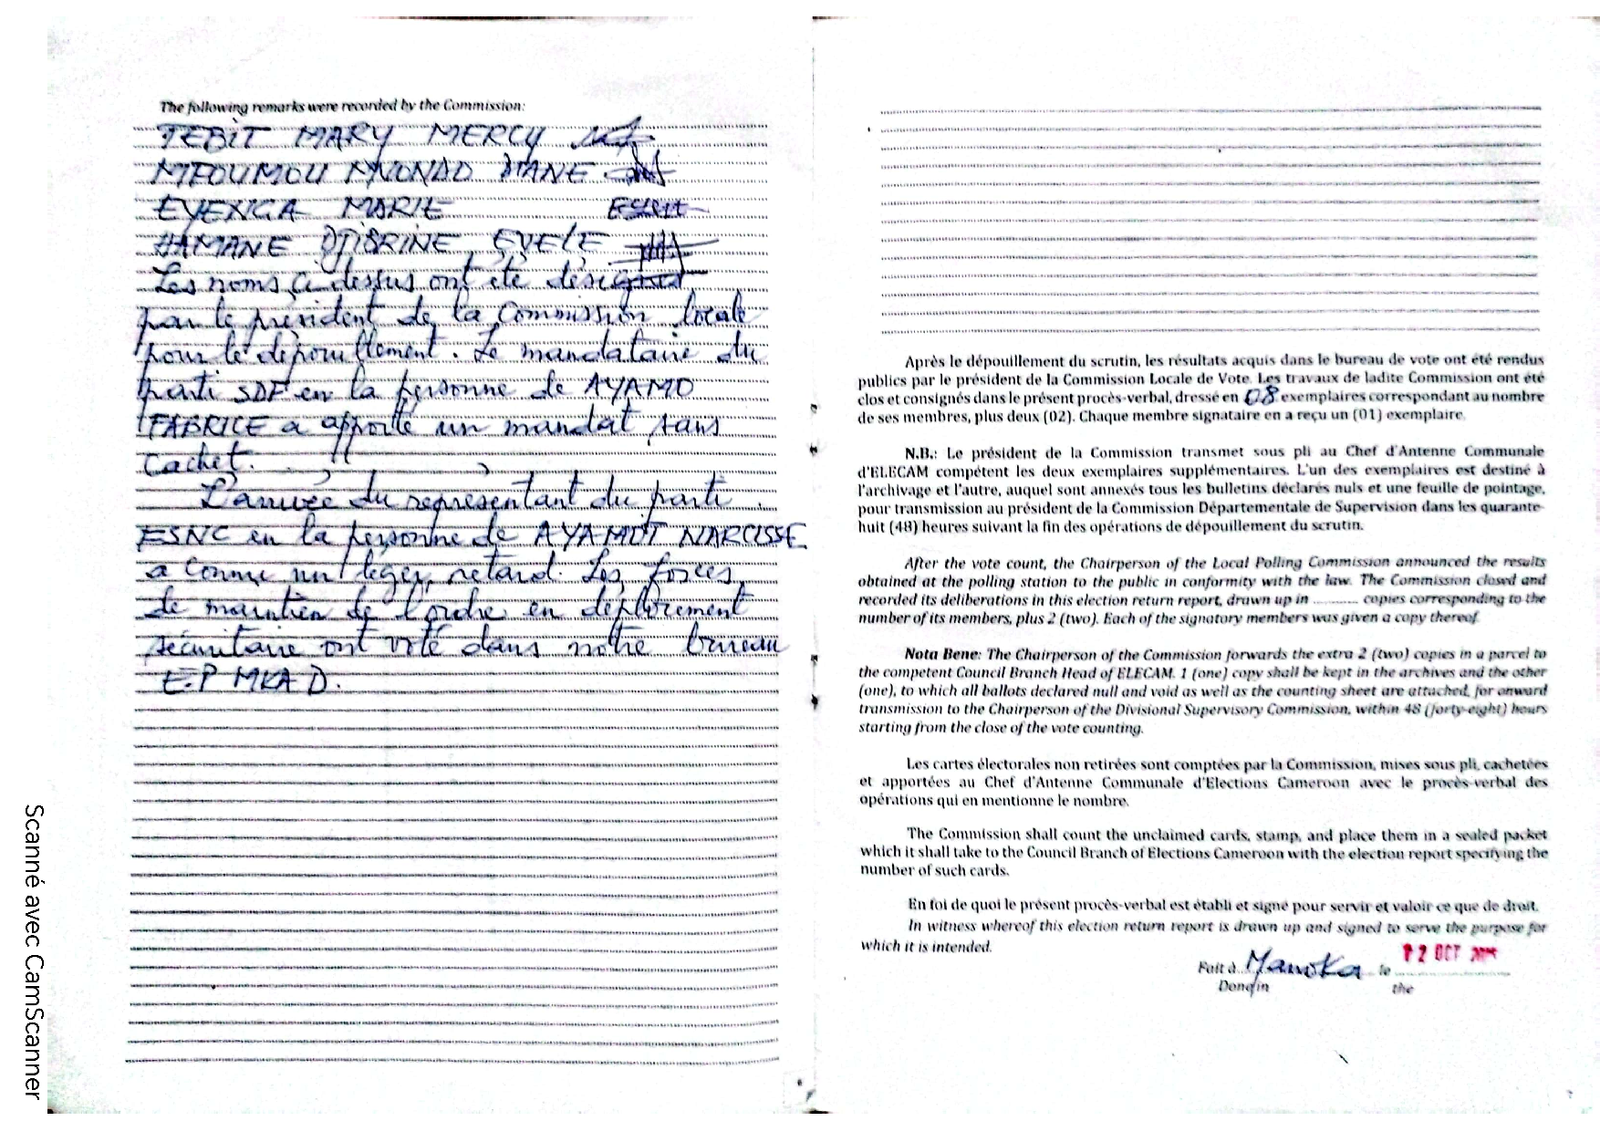 The following remarks were recorded by the Commission:
TEBIT MARY MERCY
MFOUMOU MVONDO DIANE
EYENGA MARIE
HAMANE DJIBRINE EVELE
Les noms ci dessus ont été désignés
par le président de la Commission locale
pour le dépouillement. Le mandataire du
parti SDF en la personne de AYAMO
FABRICE a apporté un mandat sans
cachet.
L'arrivée du représentant du parti
FSNC en la personne de AYAMOT NARCISSE
a connu un léger retard. Les forces
de maintien de l'ordre en déploiement
sécuritaire ont voté dans notre bureau
E.P MKA D.
Après le dépouillement du scrutin, les résultats acquis dans le bureau de vote ont été rendus
publics par le président de la Commission Locale de Vote. Les travaux de ladite Commission ont été
clos et consignés dans le présent procès-verbal, dressé en 08 exemplaires correspondant au nombre
de ses membres, plus deux (02). Chaque membre signataire en a reçu un (01) exemplaire.
N.B.: Le président de la Commission transmet sous pli au Chef d'Antenne Communale
d'ELECAM compétent les deux exemplaires supplémentaires. L'un des exemplaires est destiné à
l'archivage et l'autre, auquel sont annexés tous les bulletins déclarés nuls et une feuille de pointage,
pour transmission au président de la Commission Départementale de Supervision dans les quarante-
huit (48) heures suivant la fin des opérations de dépouillement du scrutin.
After the vote count, the Chairperson of the Local Polling Commission announced the results
obtained at the polling station to the public in conformity with the law. The Commission closed and
recorded its deliberations in this election return report, drawn up in ........... copies corresponding to the
number of its members, plus 2 (two). Each of the signatory members was given a copy thereof.
Nota Bene: The Chairperson of the Commission forwards the extra 2 (two) copies in a parcel to
the competent Council Branch Head of ELECAM. 1 (one) copy shall be kept in the archives and the other
(one), to which all ballots declared null and void as well as the counting sheet are attached, for onward
transmission to the Chairperson of the Divisional Supervisory Commission, within 48 (forty-eight) hours
starting from the close of the vote counting.
Les cartes électorales non retirées sont comptées par la Commission, mises sous pli, cachetées
et apportées au Chef d'Antenne Communale d'Elections Cameroon avec le procès-verbal des
opérations qui en mentionne le nombre.
The Commission shall count the unclaimed cards, stamp, and place them in a sealed packet
which it shall take to the Council Branch of Elections Cameroon with the election report specifying the
number of such cards.
En foi de quoi le présent procès-verbal est établi et signé pour servir et valoir ce que de droit.
In witness whereof this election return report is drawn up and signed to serve the purpose for
which it is intended.
Fait à Manoka le 12 OCT 2025
Done in the
Scanné avec CamScanner